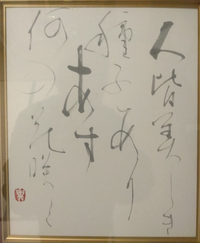 人皆美しき
種子あり
あす
何の花咲く